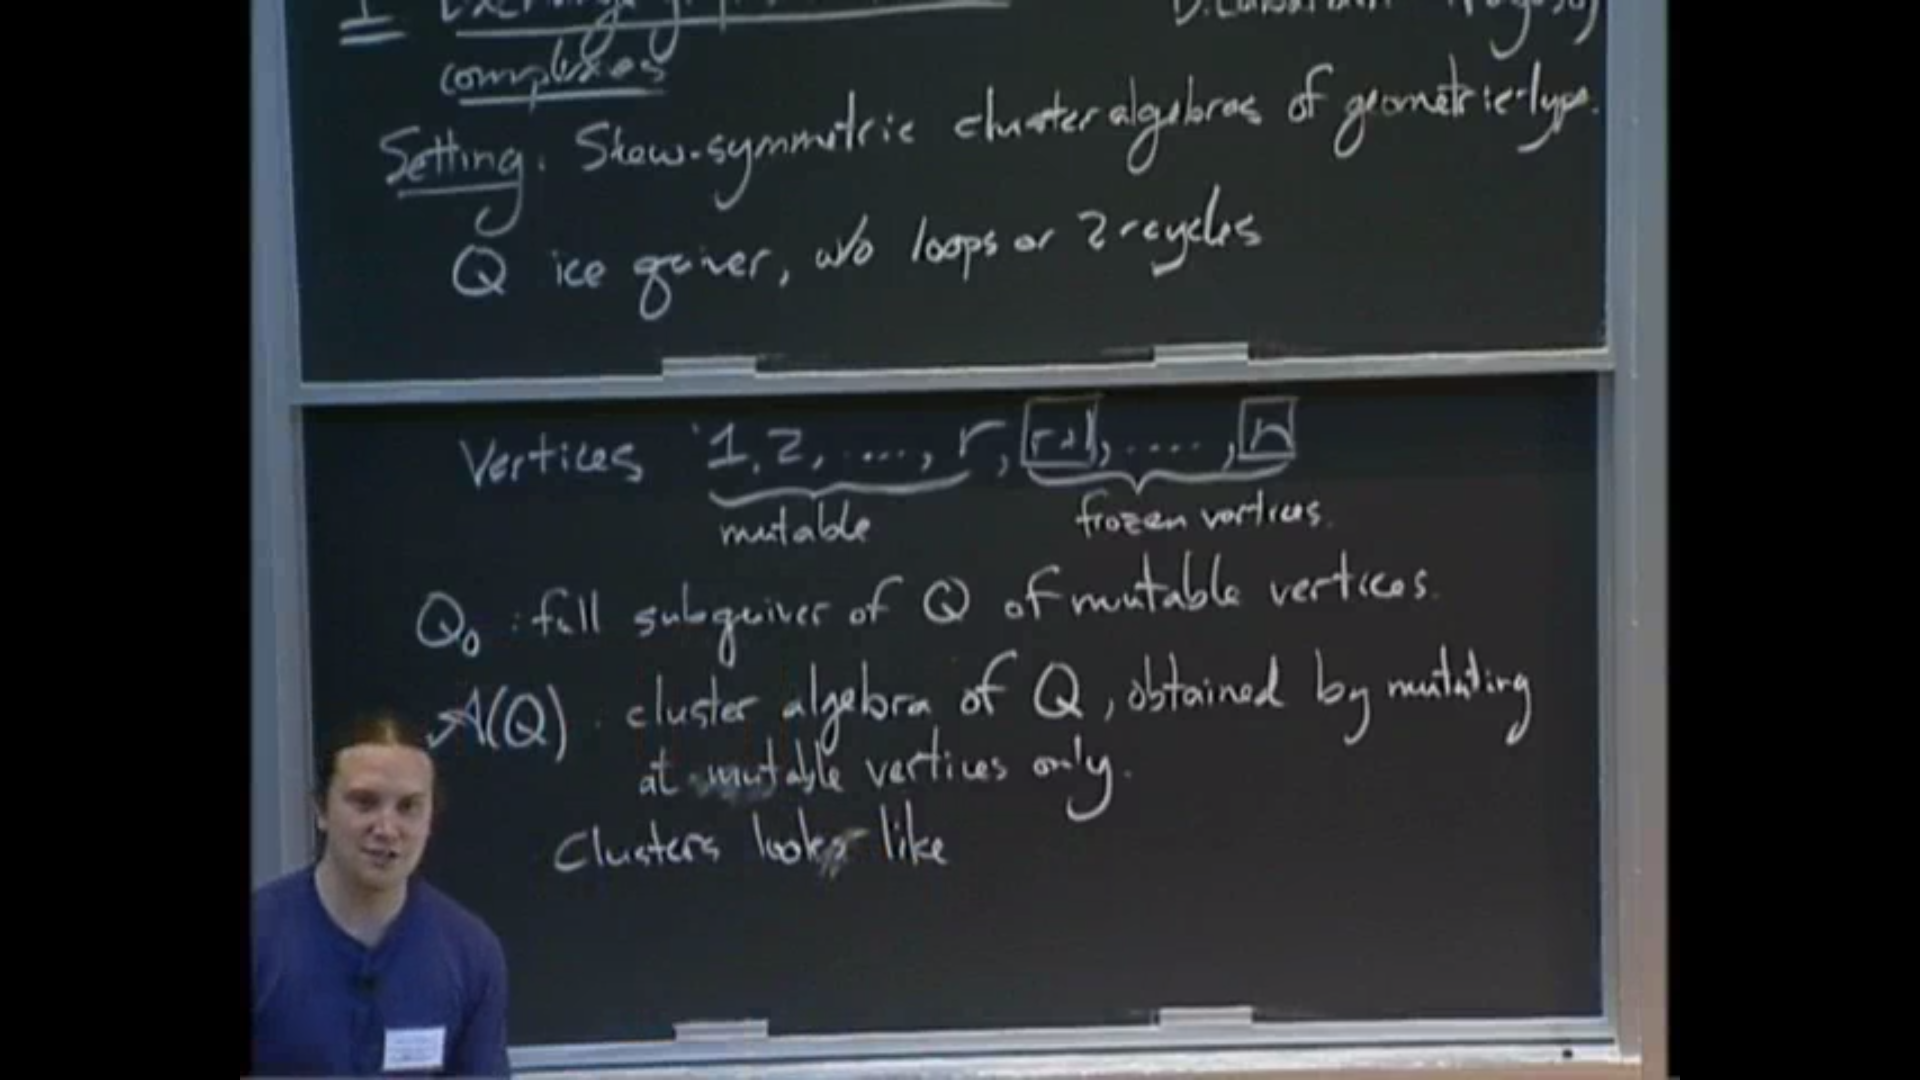 complexes
Setting. Skew-symmetric cluster algebras of geometric type.
Q ice quiver, w/o loops or 2-cycles
Vertices 1, 2, ..., r, r+1, ...., n
mutable frozen vertices.
Q₀ : full subquiver of Q of mutable vertices.
A(Q) : cluster algebra of Q, obtained by mutating
at mutable vertices only.
Clusters look like